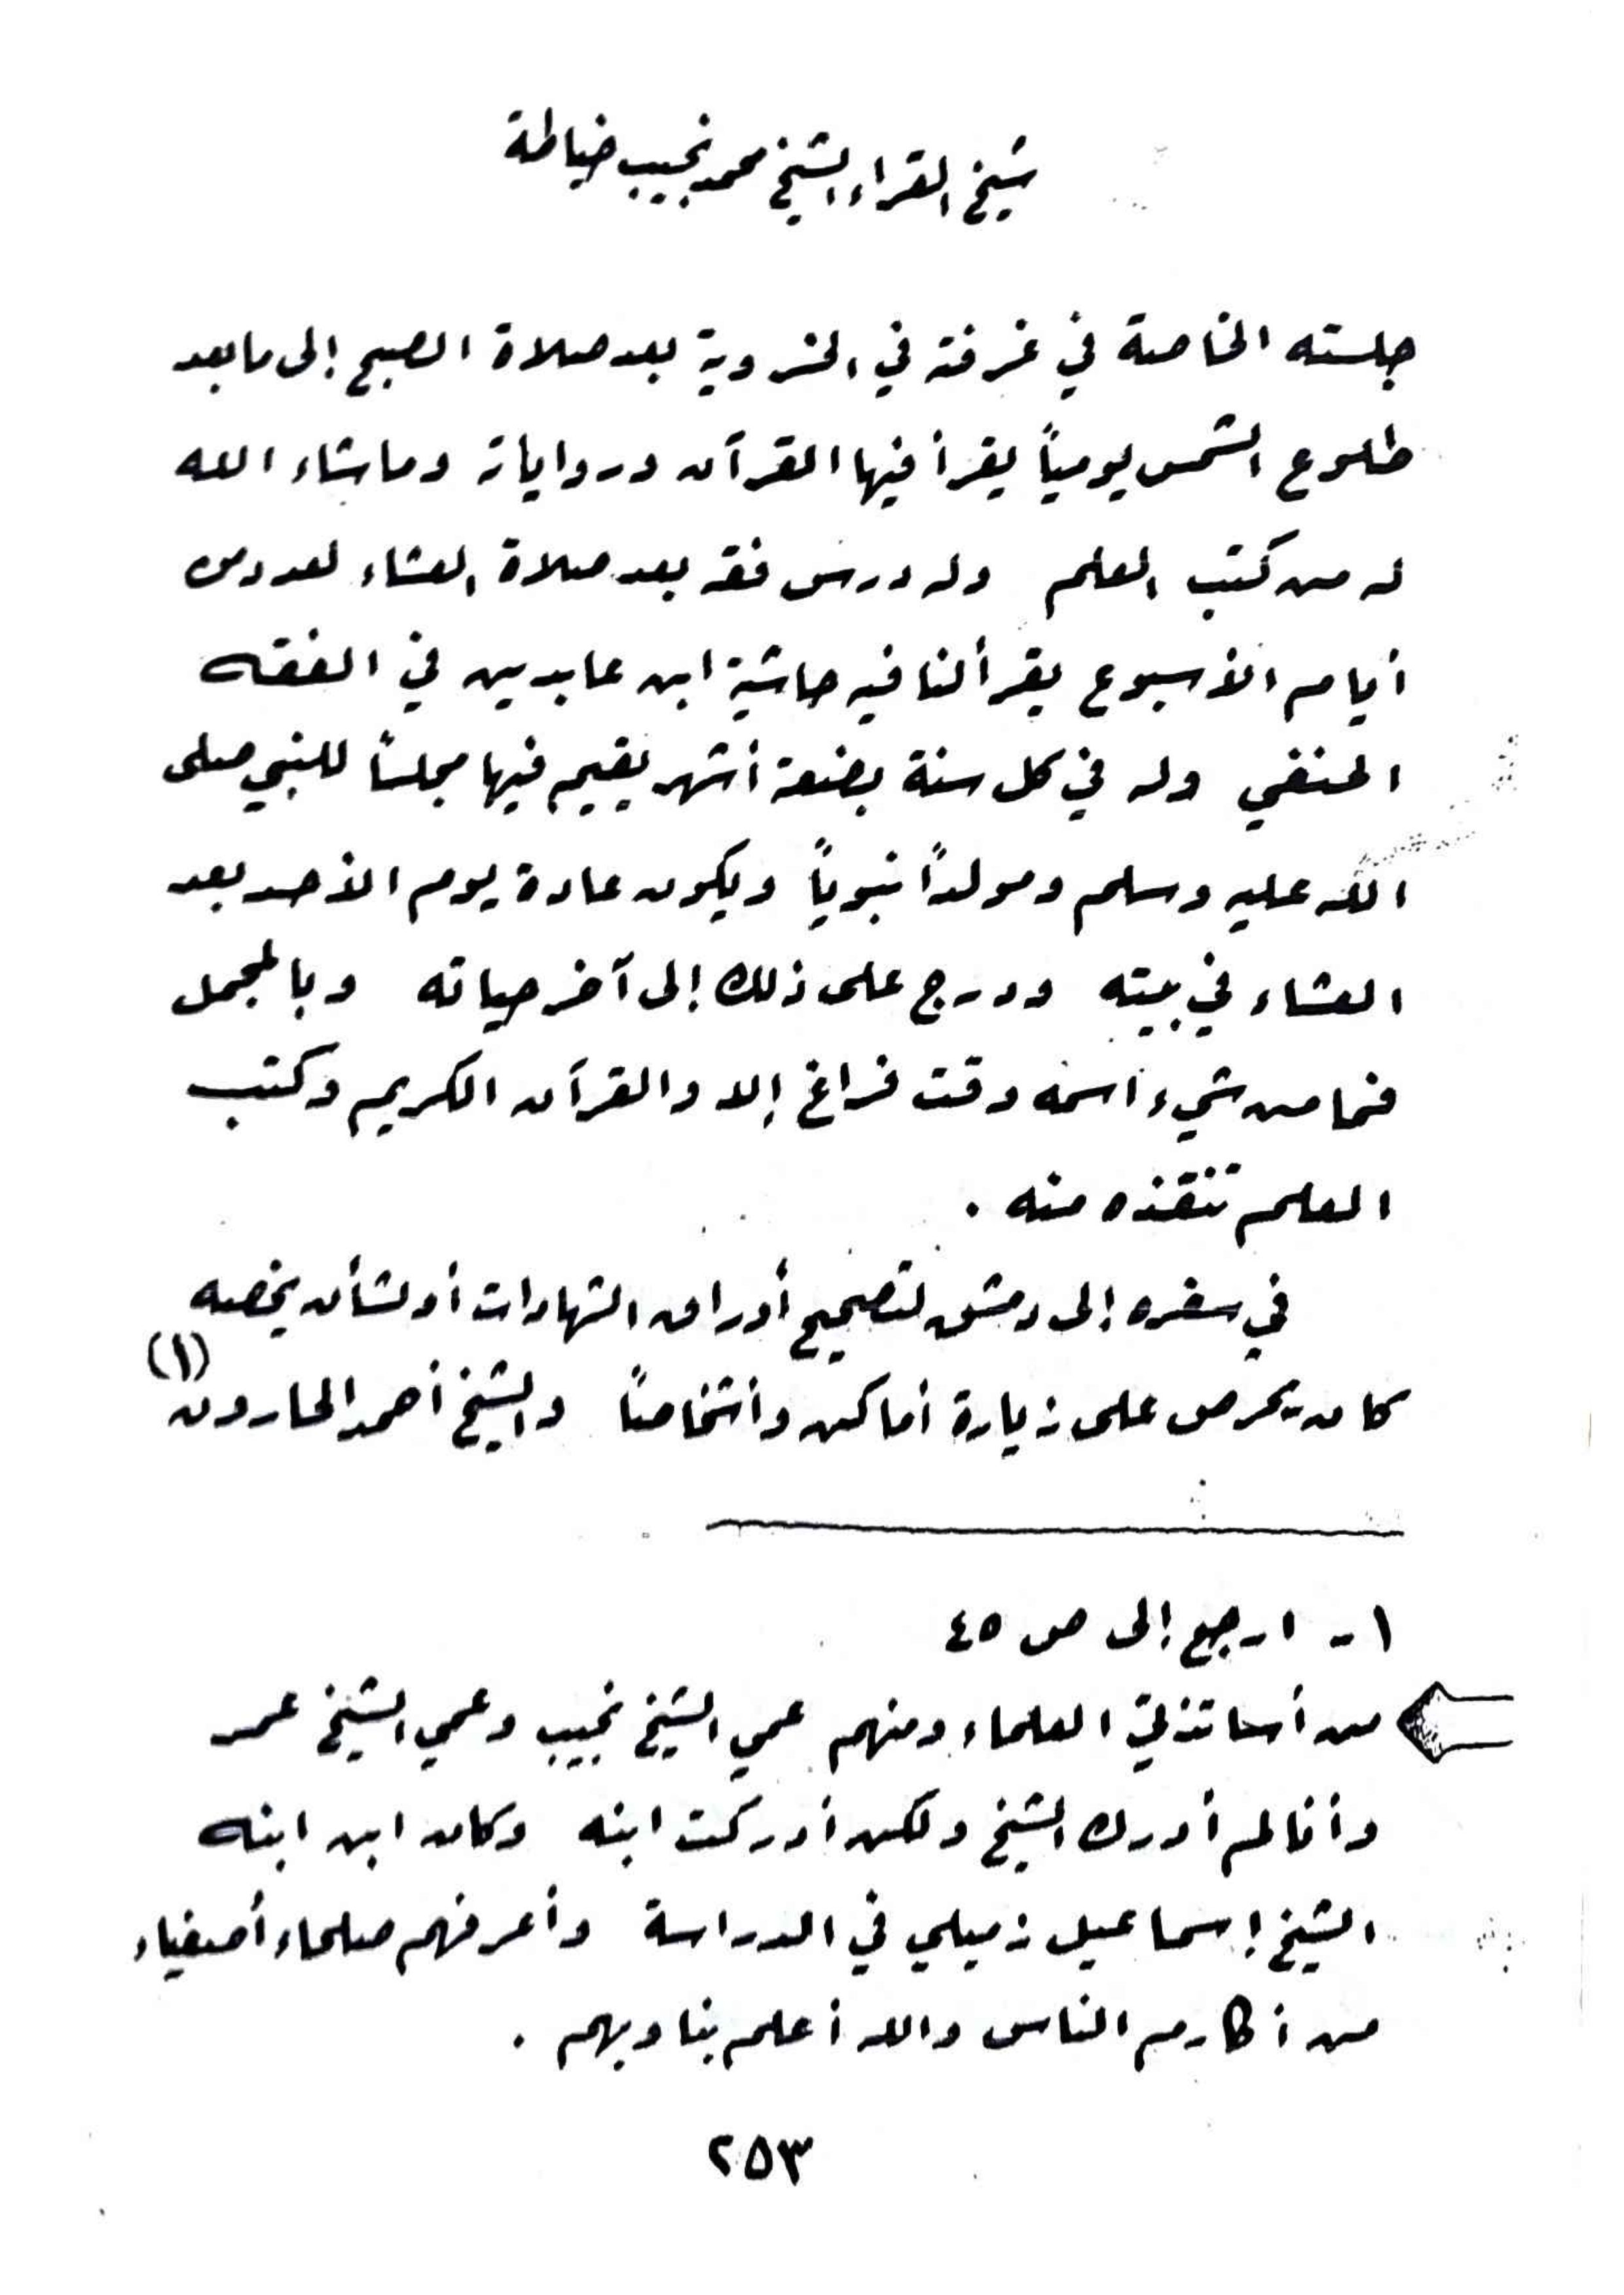 شيخ القراء الشيخ محمد نجيب خياطة
جلسته الخاصة في غرفته في الخسروية بعد صلاة الصبح إلى ما بعد
طلوع الشمس يومياً يقرأ فيها القرآن وروايات وما شاء الله
له من كتب العلم وله درس فقه بعد صلاة العشاء لعدد من
أيام الأسبوع يقرأ لنا فيه حاشية ابن عابدين في الفقه
الحنفي وله في كل سنة بضعة أشهر يقيم فيها مجلساً للنبي صلى
الله عليه وسلم ومولداً نبوياً ويكون عادة يوم الأحد بعد
العشاء في بيته ودرج على ذلك إلى آخر حياته وبالمجمل
فما من شيء اسمه وقت فراغ إلا والقرآن الكريم وكتب
العلم تنقذه منه .
في سفره إلى دمشق لتصحيح أوراق الشهادات أو لشأن يخصه
كان يحرص على زيارة أماكن وأشخاصاً والشيخ أحمد الحارون (١)
١- ارجع إلى ص ٤٥
من أساتذتي العلماء ومنهم عمي الشيخ نجيب وعمي الشيخ عمر
وأنا لم أدرك الشيخ ولكن أدركت ابنه وكان ابن ابنه
الشيخ إسماعيل زميلي في الدراسة وأعرفهم صلحاء أصفياء
من أكارم الناس والله أعلم بنا وبهم .
٢٥٣